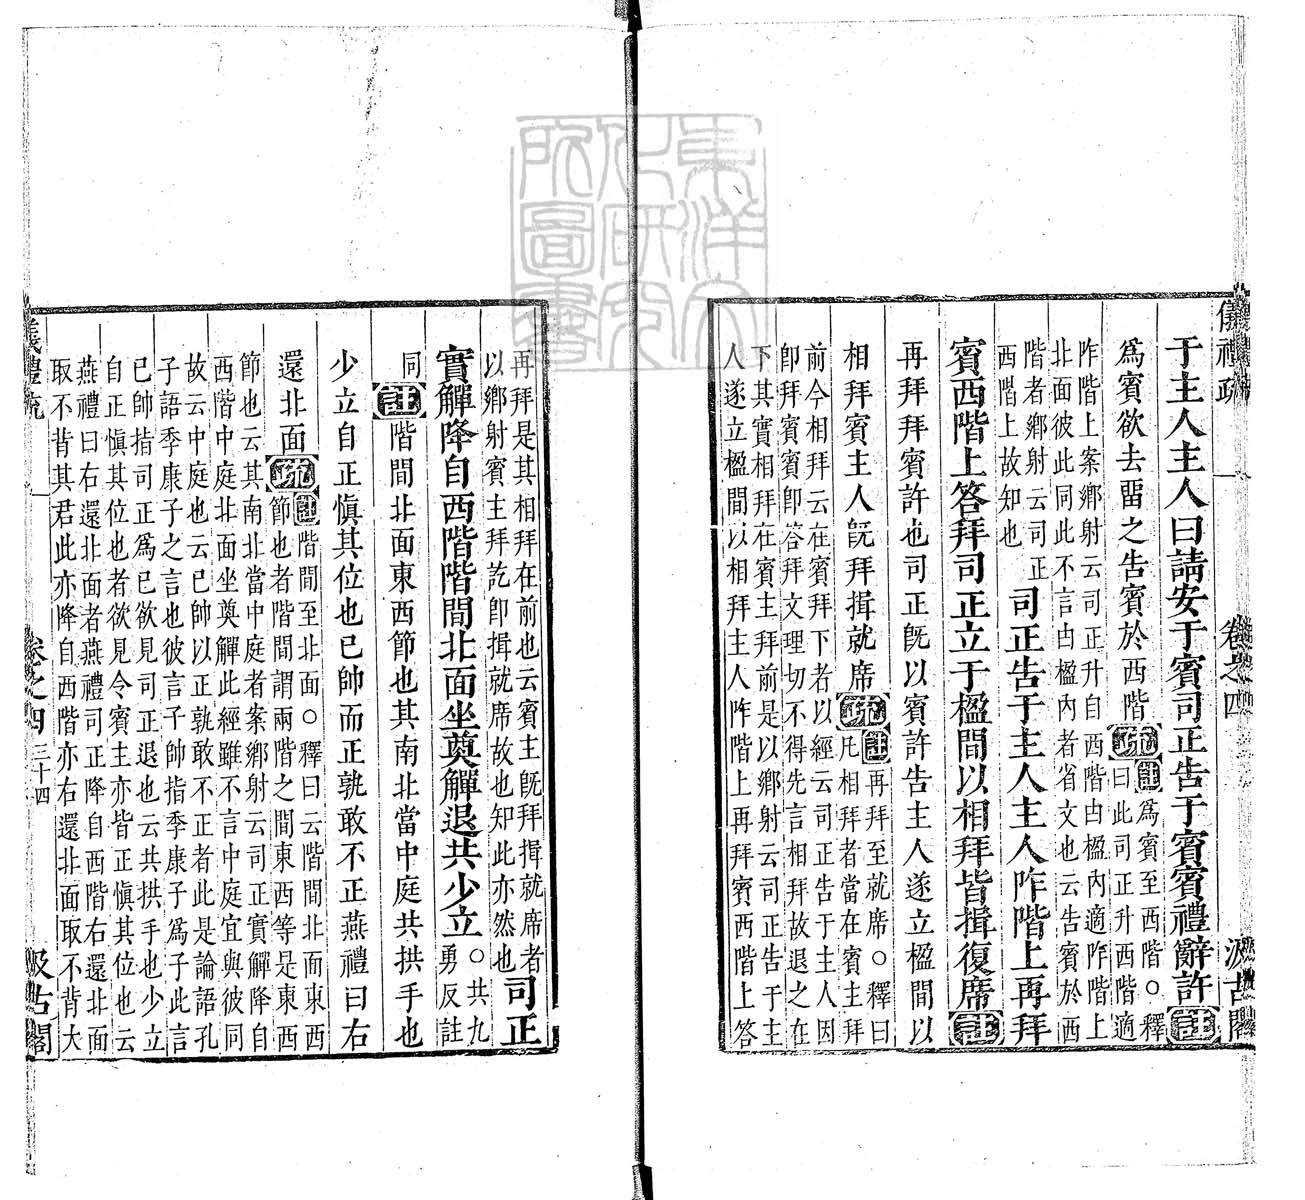 儀禮疏 卷之四 汲古閣
于主人主人曰請安于賓司正告于賓賓禮辭許註
為賓欲去畱之告賓於西階疏註為賓至西階○釋
曰此司正升西階適
阼階上案鄉射云司正升自西階由楹內適阼階上
北面彼此同此不言由楹內者省文也云告賓於西
階者鄉射云司正
西階上故知也
司正告于主人主人阼階上再拜
賓西階上答拜司正立于楹間以相拜皆揖復席註
再拜拜賓許也司正旣以賓許告主人遂立楹間以
相拜賓主人旣拜揖就席疏註再拜至就席○釋曰
凡相拜者當在賓主拜
前今相拜云在賓拜下者以經云司正告于主人因
卽拜賓賓卽答拜文理切不得先言相拜故退之在
下其實相拜在賓主拜前是以鄉射云司正告于主
人遂立楹間以相拜主人阼階上再拜賓西階上答
再拜是其相拜在前也云賓主旣拜揖就席者
以鄉射賓主拜訖卽揖就席故也知此亦然也
司正
實觶降自西階階間北面坐奠觶退共少立○共九
勇反註
同註階間北面東西節也其南北當中庭共拱手也
少立自正愼其位也已帥而正孰敢不正燕禮曰右
還北面疏註階間至北面○釋曰云階間北面東西
節也者階間謂兩階之間東西等是東西
節也云其南北當中庭者案鄉射云司正實觶降自
西階中庭北面坐奠觶此經雖不言中庭宜與彼同
故云中庭也云已帥以正孰敢不正者此是論語孔
子語季康子之言也彼言子帥指季康子爲子此言
已帥指司正爲已欲見司正退也云共拱手也少立
自正愼其位也者欲見令賓主亦皆正愼其位也云
燕禮曰右還北面者燕禮司正降自西階右還北面
取不背其君此亦降自西階亦右還北面取不背大
儀禮疏 卷之四 三十四 汲古閣